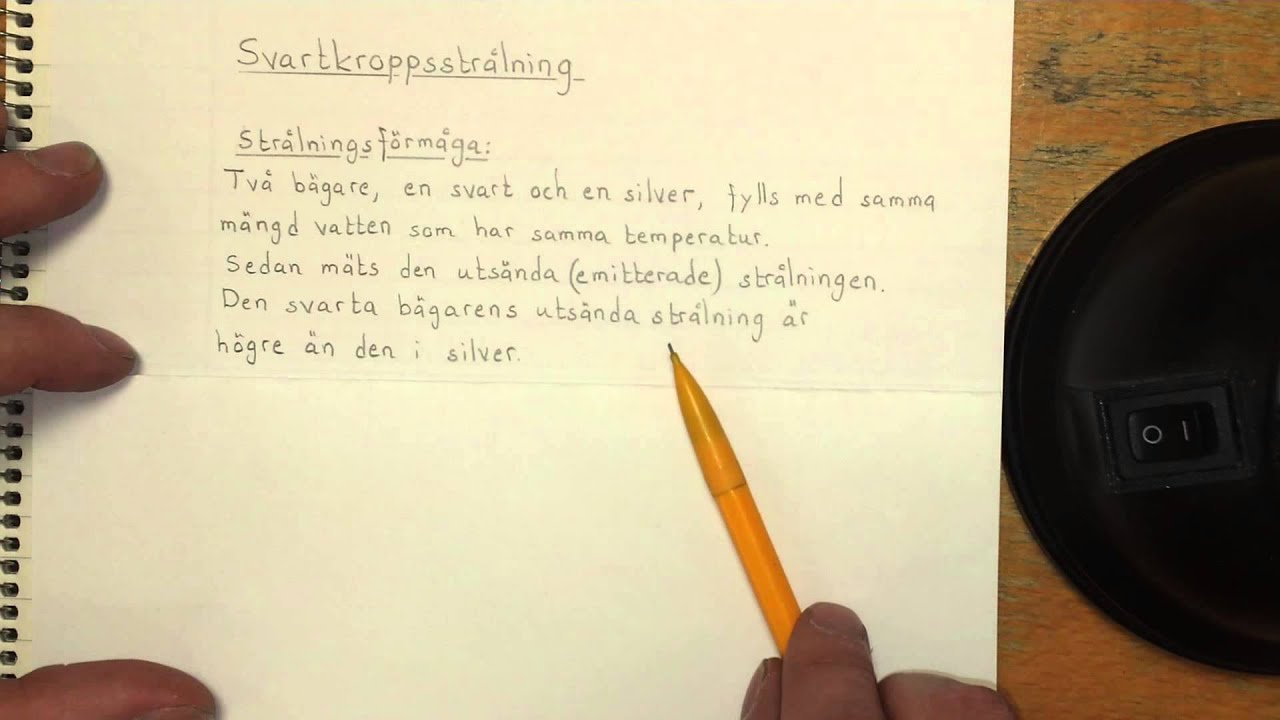 Svartkroppsstrålning
Strålningsförmåga:
Två bägare, en svart och en silver, fylls med samma
mängd vatten som har samma temperatur.
Sedan mäts den utsända (emitterade) strålningen.
Den svarta bägarens utsända strålning är
högre än den i silver.